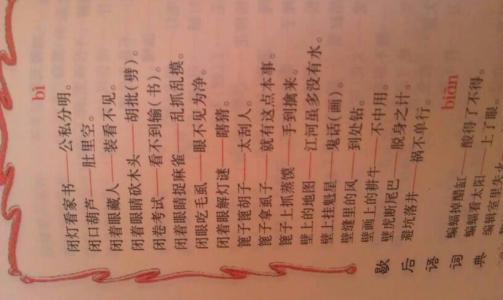 bì
闭灯看家书——公私分明。
闭口葫芦——肚里空。
闭着眼藏人——装看不见。
闭着眼睛砍木头——胡批(劈)。
闭卷考试——看不到输(书)。
闭着眼睛捉麻雀——乱抓乱摸。
闭眼吃毛虱——眼不见为净。
闭着眼解灯谜——瞎猜。
篦子篦胡子——太刮人。
篦子拿虱子——就有这点本事。
篦子上抓蒸馍——手到擒来。
壁上的地图——江河虽多没有水。
壁上挂魁星——鬼话(画)。
壁缝里的风——到处钻。
壁画上的耕牛——不中用。
壁虎断尾巴——脱身之计。
避坑落井——祸不单行。
biān
蝙蝠掉醋缸——酸得了不得。
蝙蝠看太阳——上了眼
歇后语词典